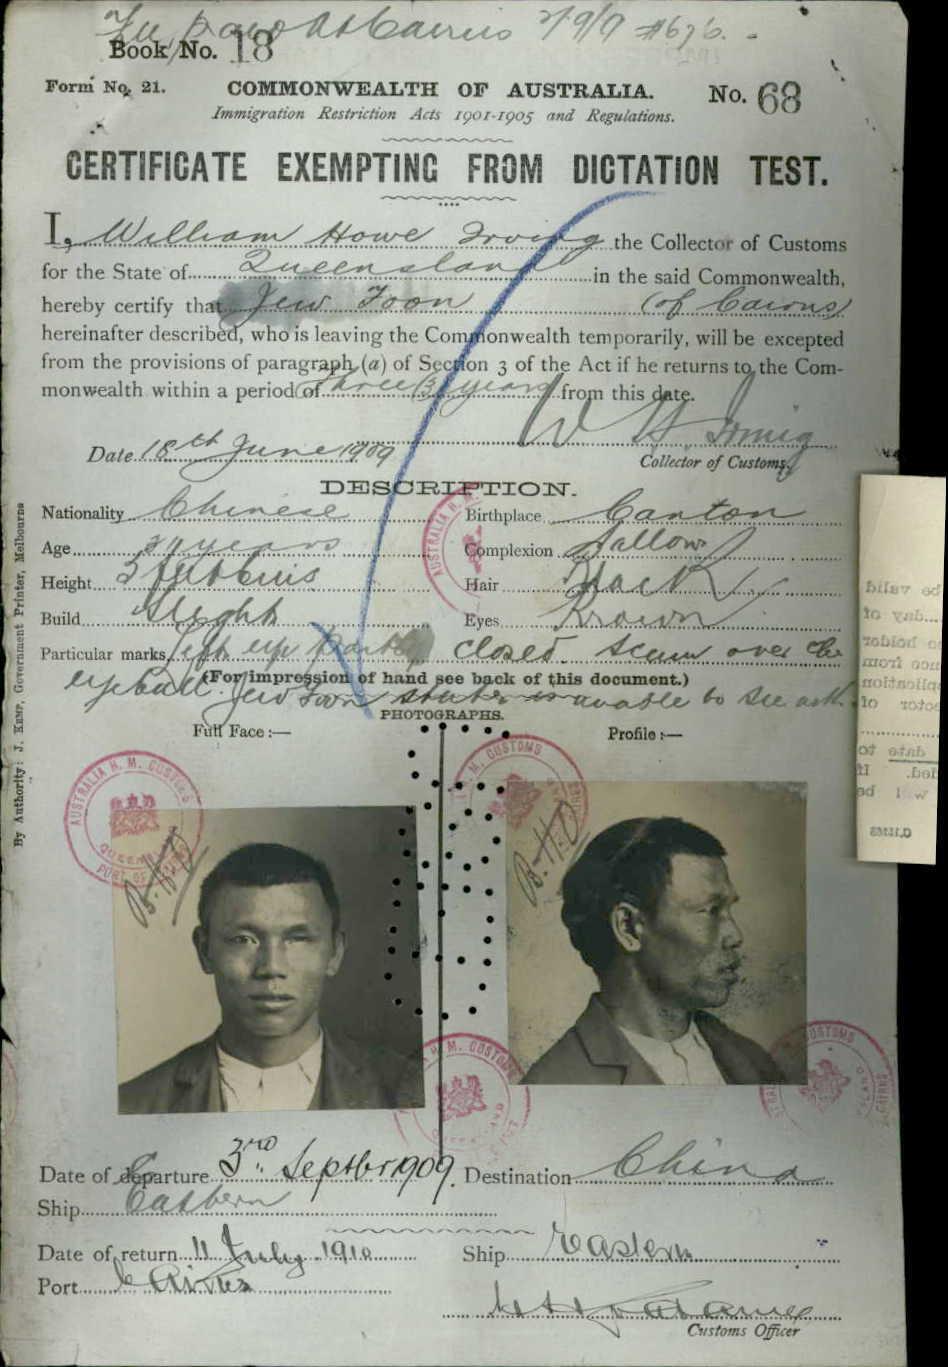 Book No. 18
Form No. 21. COMMONWEALTH OF AUSTRALIA. No. 68
Immigration Restriction Acts 1901-1905 and Regulations.
CERTIFICATE EXEMPTING FROM DICTATION TEST.
I, William Howe Irving the Collector of Customs
for the State of Queensland in the said Commonwealth,
hereby certify that Jew Foon (of Cairns)
hereinafter described, who is leaving the Commonwealth temporarily, will be excepted
from the provisions of paragraph (a) of Section 3 of the Act if he returns to the Com-
monwealth within a period of Three (3) years from this date.
W H Irving
Date 18th June 1909
Collector of Customs.
DESCRIPTION.
Nationality Chinese Birthplace Canton
Age years Complexion Sallow
Height 5 Hair Black
Build Slight Eyes Brown
Particular marks Left eye closed. Scum over the
(For impression of hand see back of this document.)
eyeball. Jew Foon states is unable to see with
PHOTOGRAPHS.
Full Face :— Profile :—
AUSTRALIA H. M. CUSTOMS
PORT OF
Date of departure 3rd Septbr 1909. Destination China
Ship Eastern
Date of return 11 July 1910 Ship Eastern
Port Cairns
Customs Officer
By Authority: J. KEMP, Government Printer, Melbourne